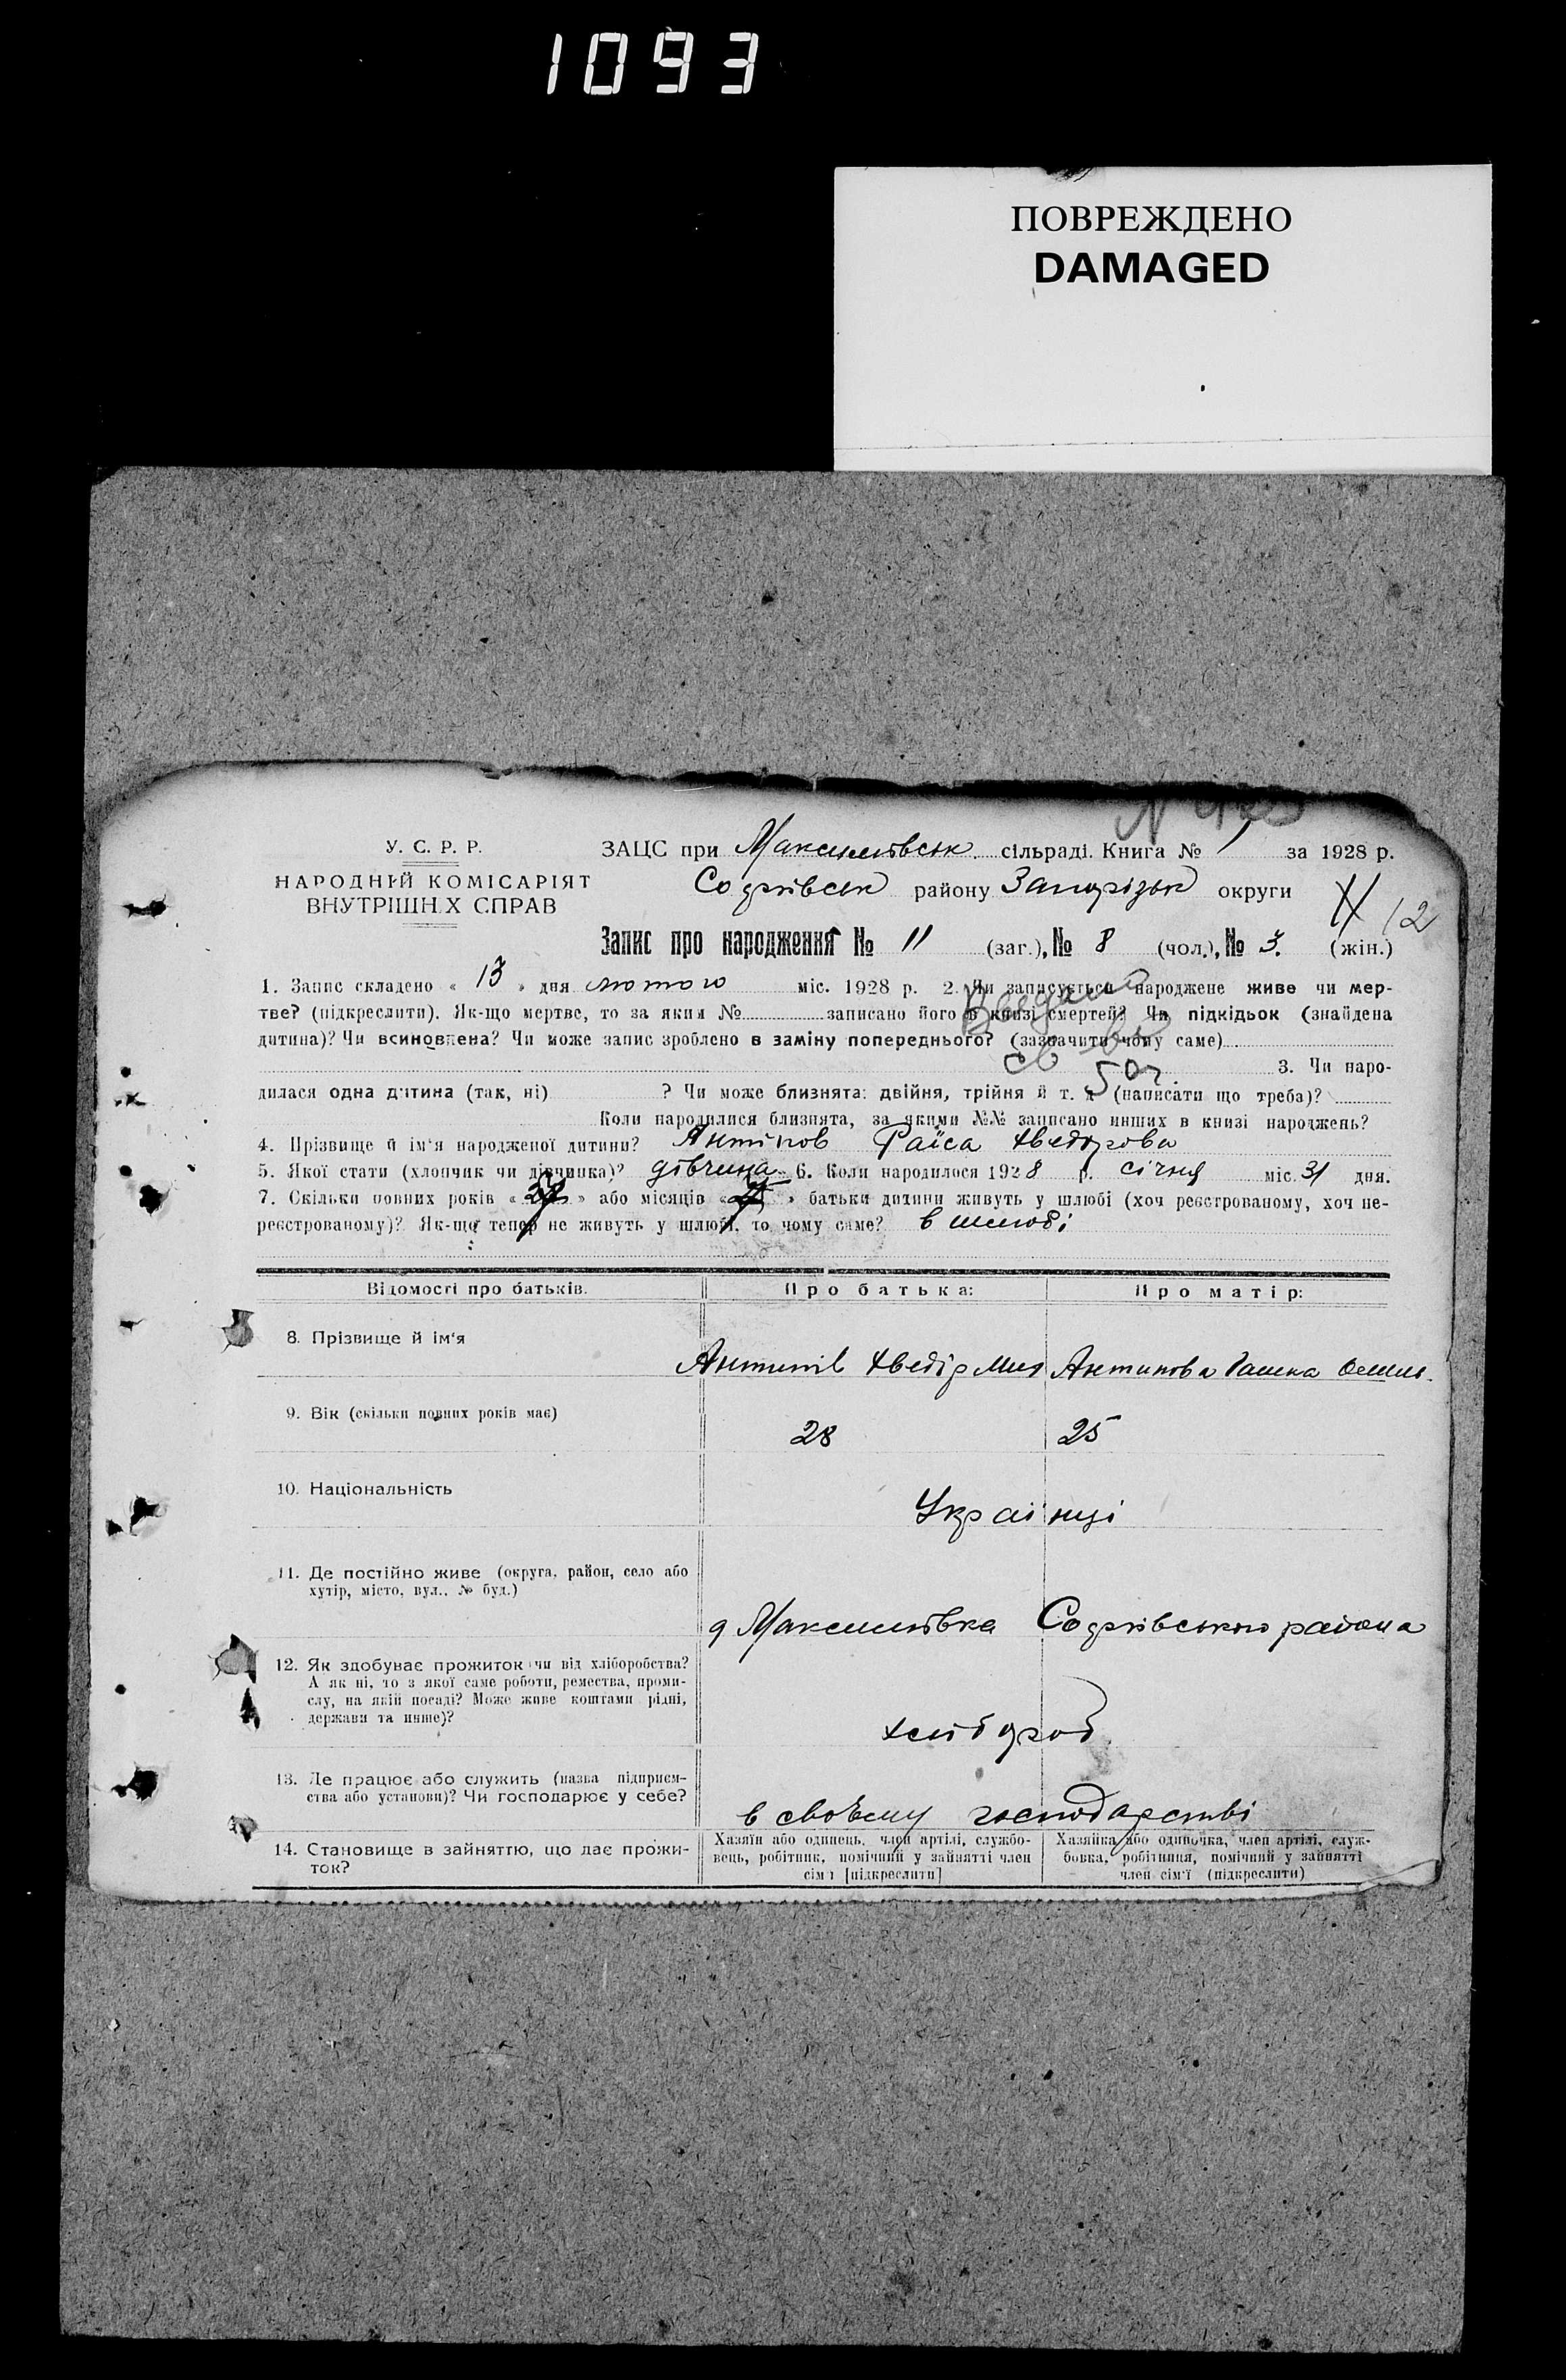 1093
ПОВРЕЖДЕНО
DAMAGED
У. С. Р. Р.
НАРОДНІЙ КОМІСАРІЯТ
ВНУТРІШН.Х СПРАВ
ЗАЦС при Максимівськ. сільраді. Книга № 1 за 1928 р.
Софіївськ району Запоріжськ округи
12
Запис про народження № 11 (заг.), № 8 (чол.), № 3. (жін.)
1. Запис складено « 13 » дня лютого міс. 1928 р. 2. Чи записується народжене живе чи мер-
тве? (підкреслити). Як-що мертве, то за яким № записано його в книзі смертей? Чи підкідьок (знайдена
дитина)? Чи всиновлена? Чи може запис зроблено в заміну попереднього? (зазначити чому саме)
3. Чи наро-
дилася одна дитина (так, ні) ? Чи може близнята: двійня, трійня й т. д. (написати що треба)?
Коли народилися близнята, за якими №№ записано инших в книзі народжень?
4. Прізвище й ім‘я народженої дитини? Антіпов Раїса Хведорова
5. Якої стати (хлопчик чи дівчинка)? дівчина 6. Коли народилося 1928 р. січня міс. 31 дня.
7. Скільки повних років « » або місяців « » батьки дитини живуть у шлюбі (хоч реєстрованому, хоч не-
реєстрованому)? Як-що тепер не живуть у шлюбі, то чому саме? в шлюбі
Відомості про батьків.
Про батька:
Про матір:
8. Прізвище й ім‘я
Антипів Хведір Мих
Антипова
9. Вік (скільки повних років має)
28
25
10. Національність
Українці
11. Де постійно живе (округа, район, село або
хутір, місто, вул., № буд.)
Максимівка Софіївського района
12. Як здобуває прожиток (чи від хліборобства?
А як ні, то з якої саме роботи, ремества, проми-
слу, на якій посаді? Може живе коштами рідні,
держави та инше)?
хлібороб
13. Де працює або служить (назва підприєм-
ства або установи)? Чи господарює у себе?
в своєму господарстві
14. Становище в зайняттю, що дає прожи-
ток?
Хазяїн або одинець, член артілі, службо-
вець, робітник, помічний у зайнятті член
сім‘ї [підкреслити]
Хазяйка або одиночка, член артілі, служ-
бовка, робітниця, помічний у зайнятті
член сім‘ї (підкреслити)